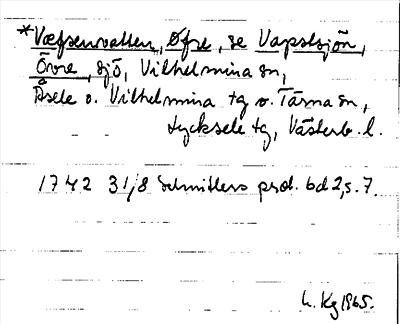 *Væfsenvatten, Øfre, se Vapstsjön,
Övre, sjö, Vilhelmina sn,
Åsele o. Vilhelmina tg o. Tärna sn,
Lycksele tg, Västerb. l.
1742 31/8 Schnitlers prot. bd 2, s. 7.
L. Kg 1965.